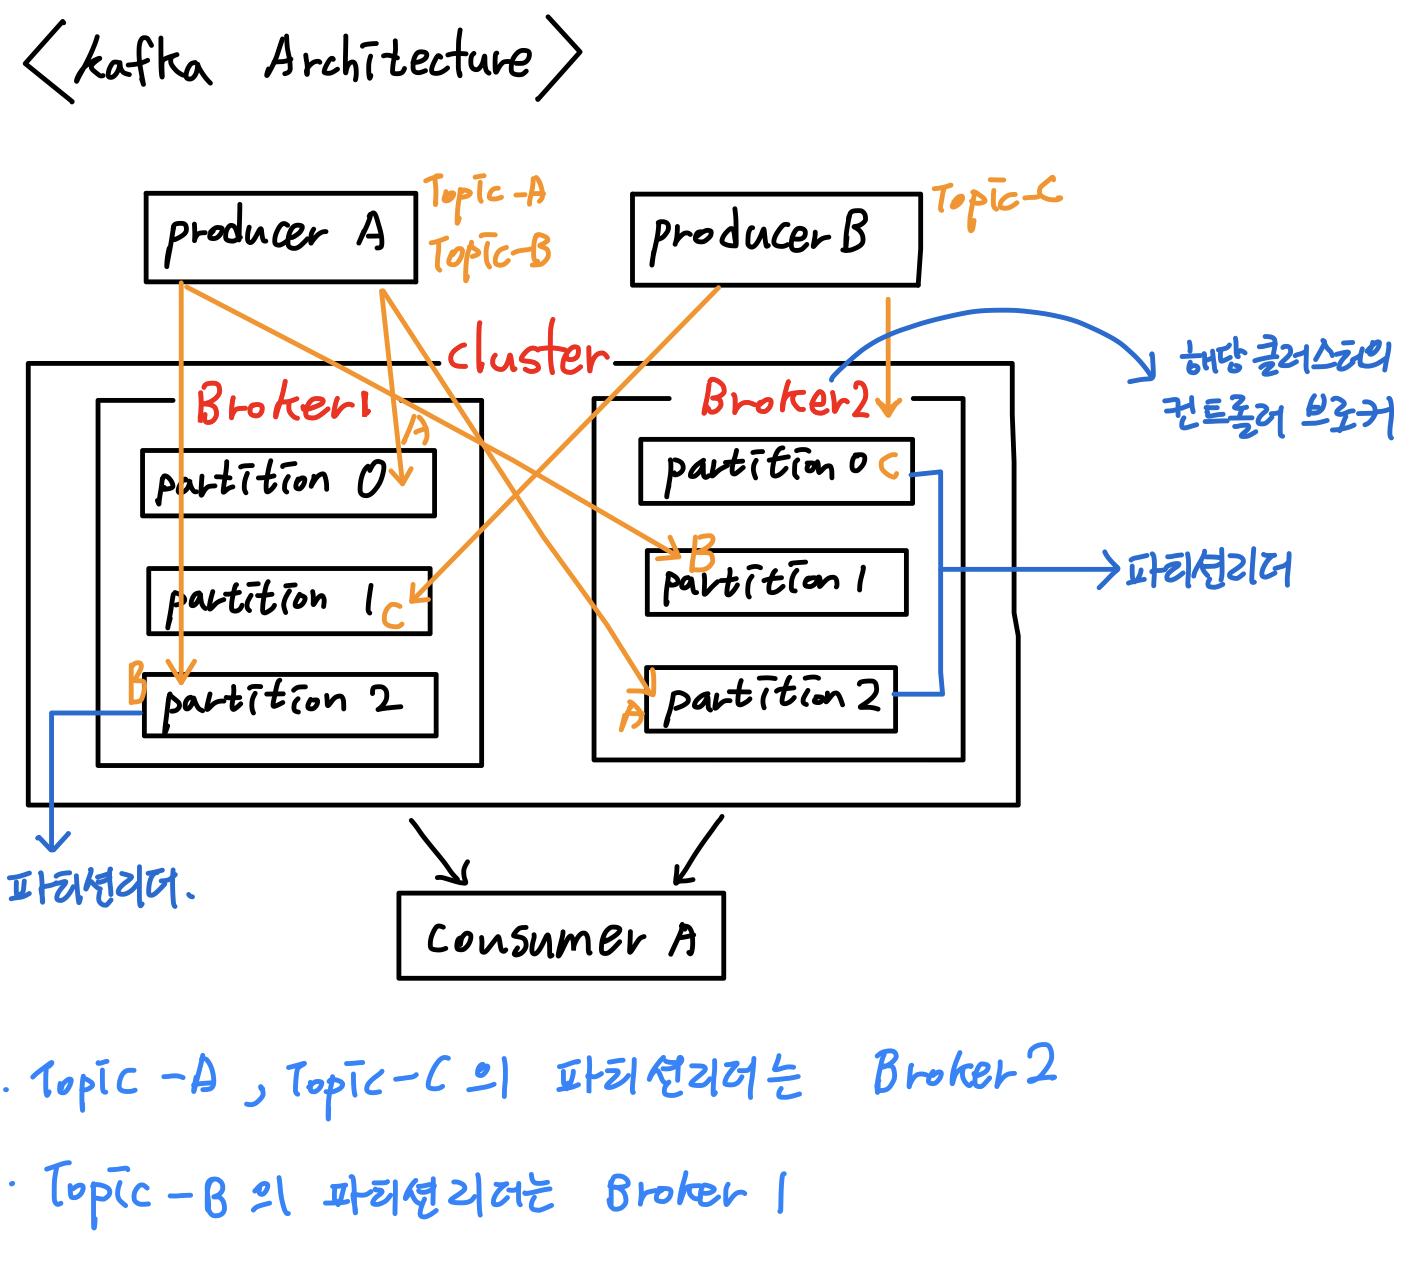 <kafka Architecture>
producer A
Topic-A
Topic-B
producer B
Topic-C
cluster
Broker1
A
partition 0
partition 1
C
B
partition 2
Broker2
partition 0 C
B
partition 1
A
partition 2
해당 클러스터의
컨트롤러 브로커
파티션리더
파티션리더.
Consumer A
· Topic-A , Topic-C 의 파티션리더는 Broker2
· Topic-B 의 파티션리더는 Broker 1